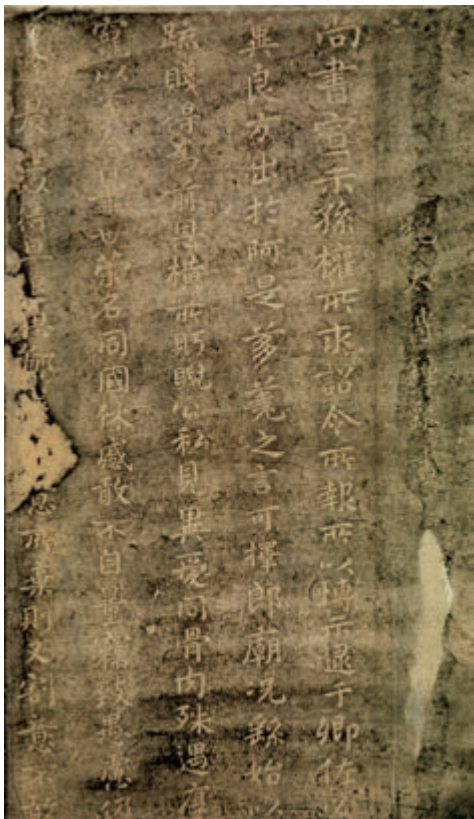 尚書宣示孫權所求詔令所報所以博示逮于卿佐必
冀良方出於阿是芻蕘之言可擇郎廟況繇始以
疏賤得為前恩橫所眄睨公私見異愛同骨肉殊遇厚
寵以至今日再世榮名同國休慼敢不自量竊致愚慮仍
晨坐以待旦退思鄙意所棄則又割意不敢